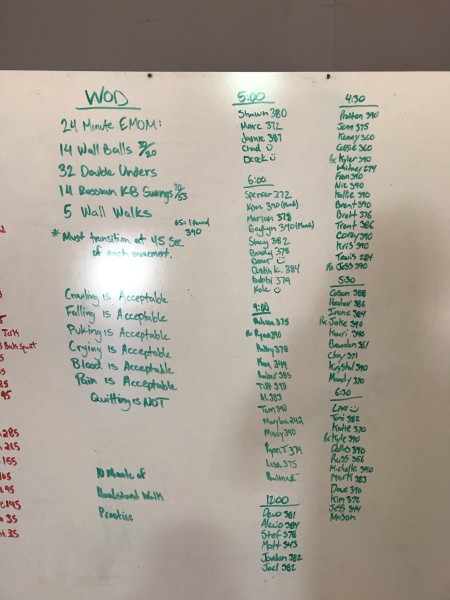 WOD
24 Minute EMOM:
14 Wall Balls 30/20
32 Double Unders
14 Russian KB Swings 70/53
5 Wall Walks
65 = 1 Round
390
* Must transition at 45 sec
of each movement.
Crawling is Acceptable
Falling is Acceptable
Puking is Acceptable
Crying is Acceptable
Blood is Acceptable
Pain is Acceptable
Quitting is NOT
10 Minute of
Handstand Walk
Practice
5:00
Shawn 380
Marc 372
Jamie 387
Chad
Derek
6:00
Spencer 372
Kim 390
Marian 378
Gaylyn 390
Stacy 382
Brady 378
Dustin K. 384
Bobbi 379
Kole
9:00
Melissa 375
Rx Ryan 390
Holly 378
Meg 349
Amber 385
Tiff 377
Al 383
Tom 390
Marybu 242
Missy 390
Ryan T. 374
Lisa 375
12:00
Devo 381
Alecio 384
Stef 378
Matt 343
Jordan 382
Joel 382
4:30
Preston 390
Jenn 375
Kenny 360
Cassie 360
Rx Kyler 390
Whitney 294
Fran 390
Nic 390
Hollie 390
Brent 390
Brett 376
Trent 386
Corey 390
Kris 390
Travis 284
Rx Jess 390
5:30
Cason 388
Heather 386
Irene 384
Rx Jake 390
Kauri 390
Brandon 361
Clay 371
Krystal 390
Mandy 370
6:30
Lisa
Toni 382
Katie 370
Rx Kyle 390
Dallas 390
Russ 356
Michelle 390
Mark 383
Dave 390
Kim 372
Jess 344
Mason
285
215
155
165
95
145
35
35